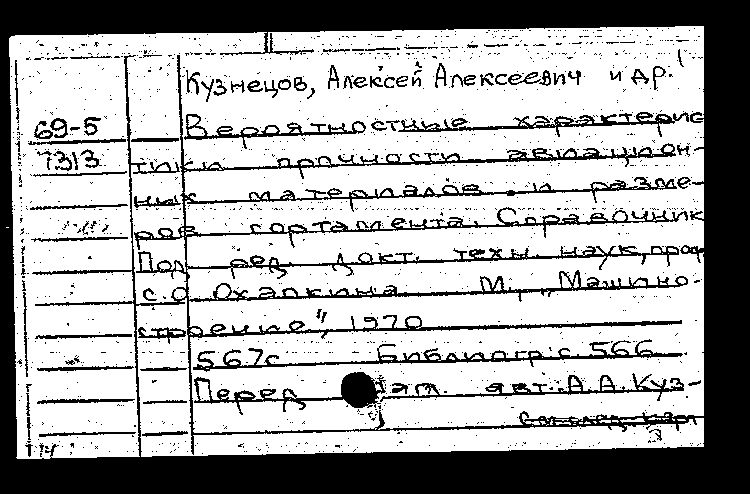 Кузнецов, Алексей Алексеевич и др.
69-5 Вероятностные характерис
7313 тики прочности авиацион-
ных материалов и разме-
ров сортамента. Справочник
Под ред. докт. техн. наук, проф
с.О Охапкина М., „Машино-
строение", 1970
567с Библиогр: с. 566
Перед авт.: А.А. Куз-
см. след. карт